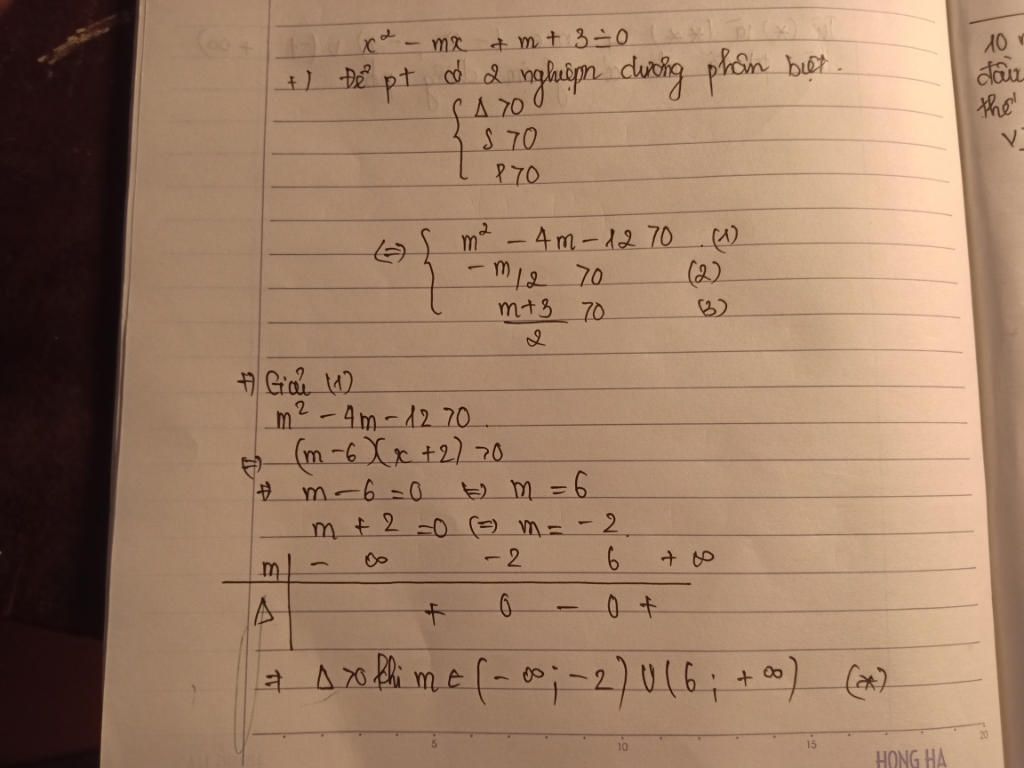 x² - mx + m + 3 = 0
+) Để pt có 2 nghiệm dương phân biệt.
{ Δ > 0
S > 0
P > 0
⇔ { m² - 4m - 12 > 0 (1)
- m/2 > 0 (2)
m+3 > 0 (3)
2
+) Giải (1)
m² - 4m - 12 > 0.
⇔ (m - 6)(x + 2) > 0
+) m - 6 = 0 ⇔ m = 6
m + 2 = 0 ⇔ m = -2.
m | - ∞ -2 6 + ∞
Δ | + 0 - 0 +
⇒ Δ > 0 khi m ∈ (- ∞ ; - 2) ∪ (6 ; + ∞) (*)
5 10 15 20
HONG HA
10
thế